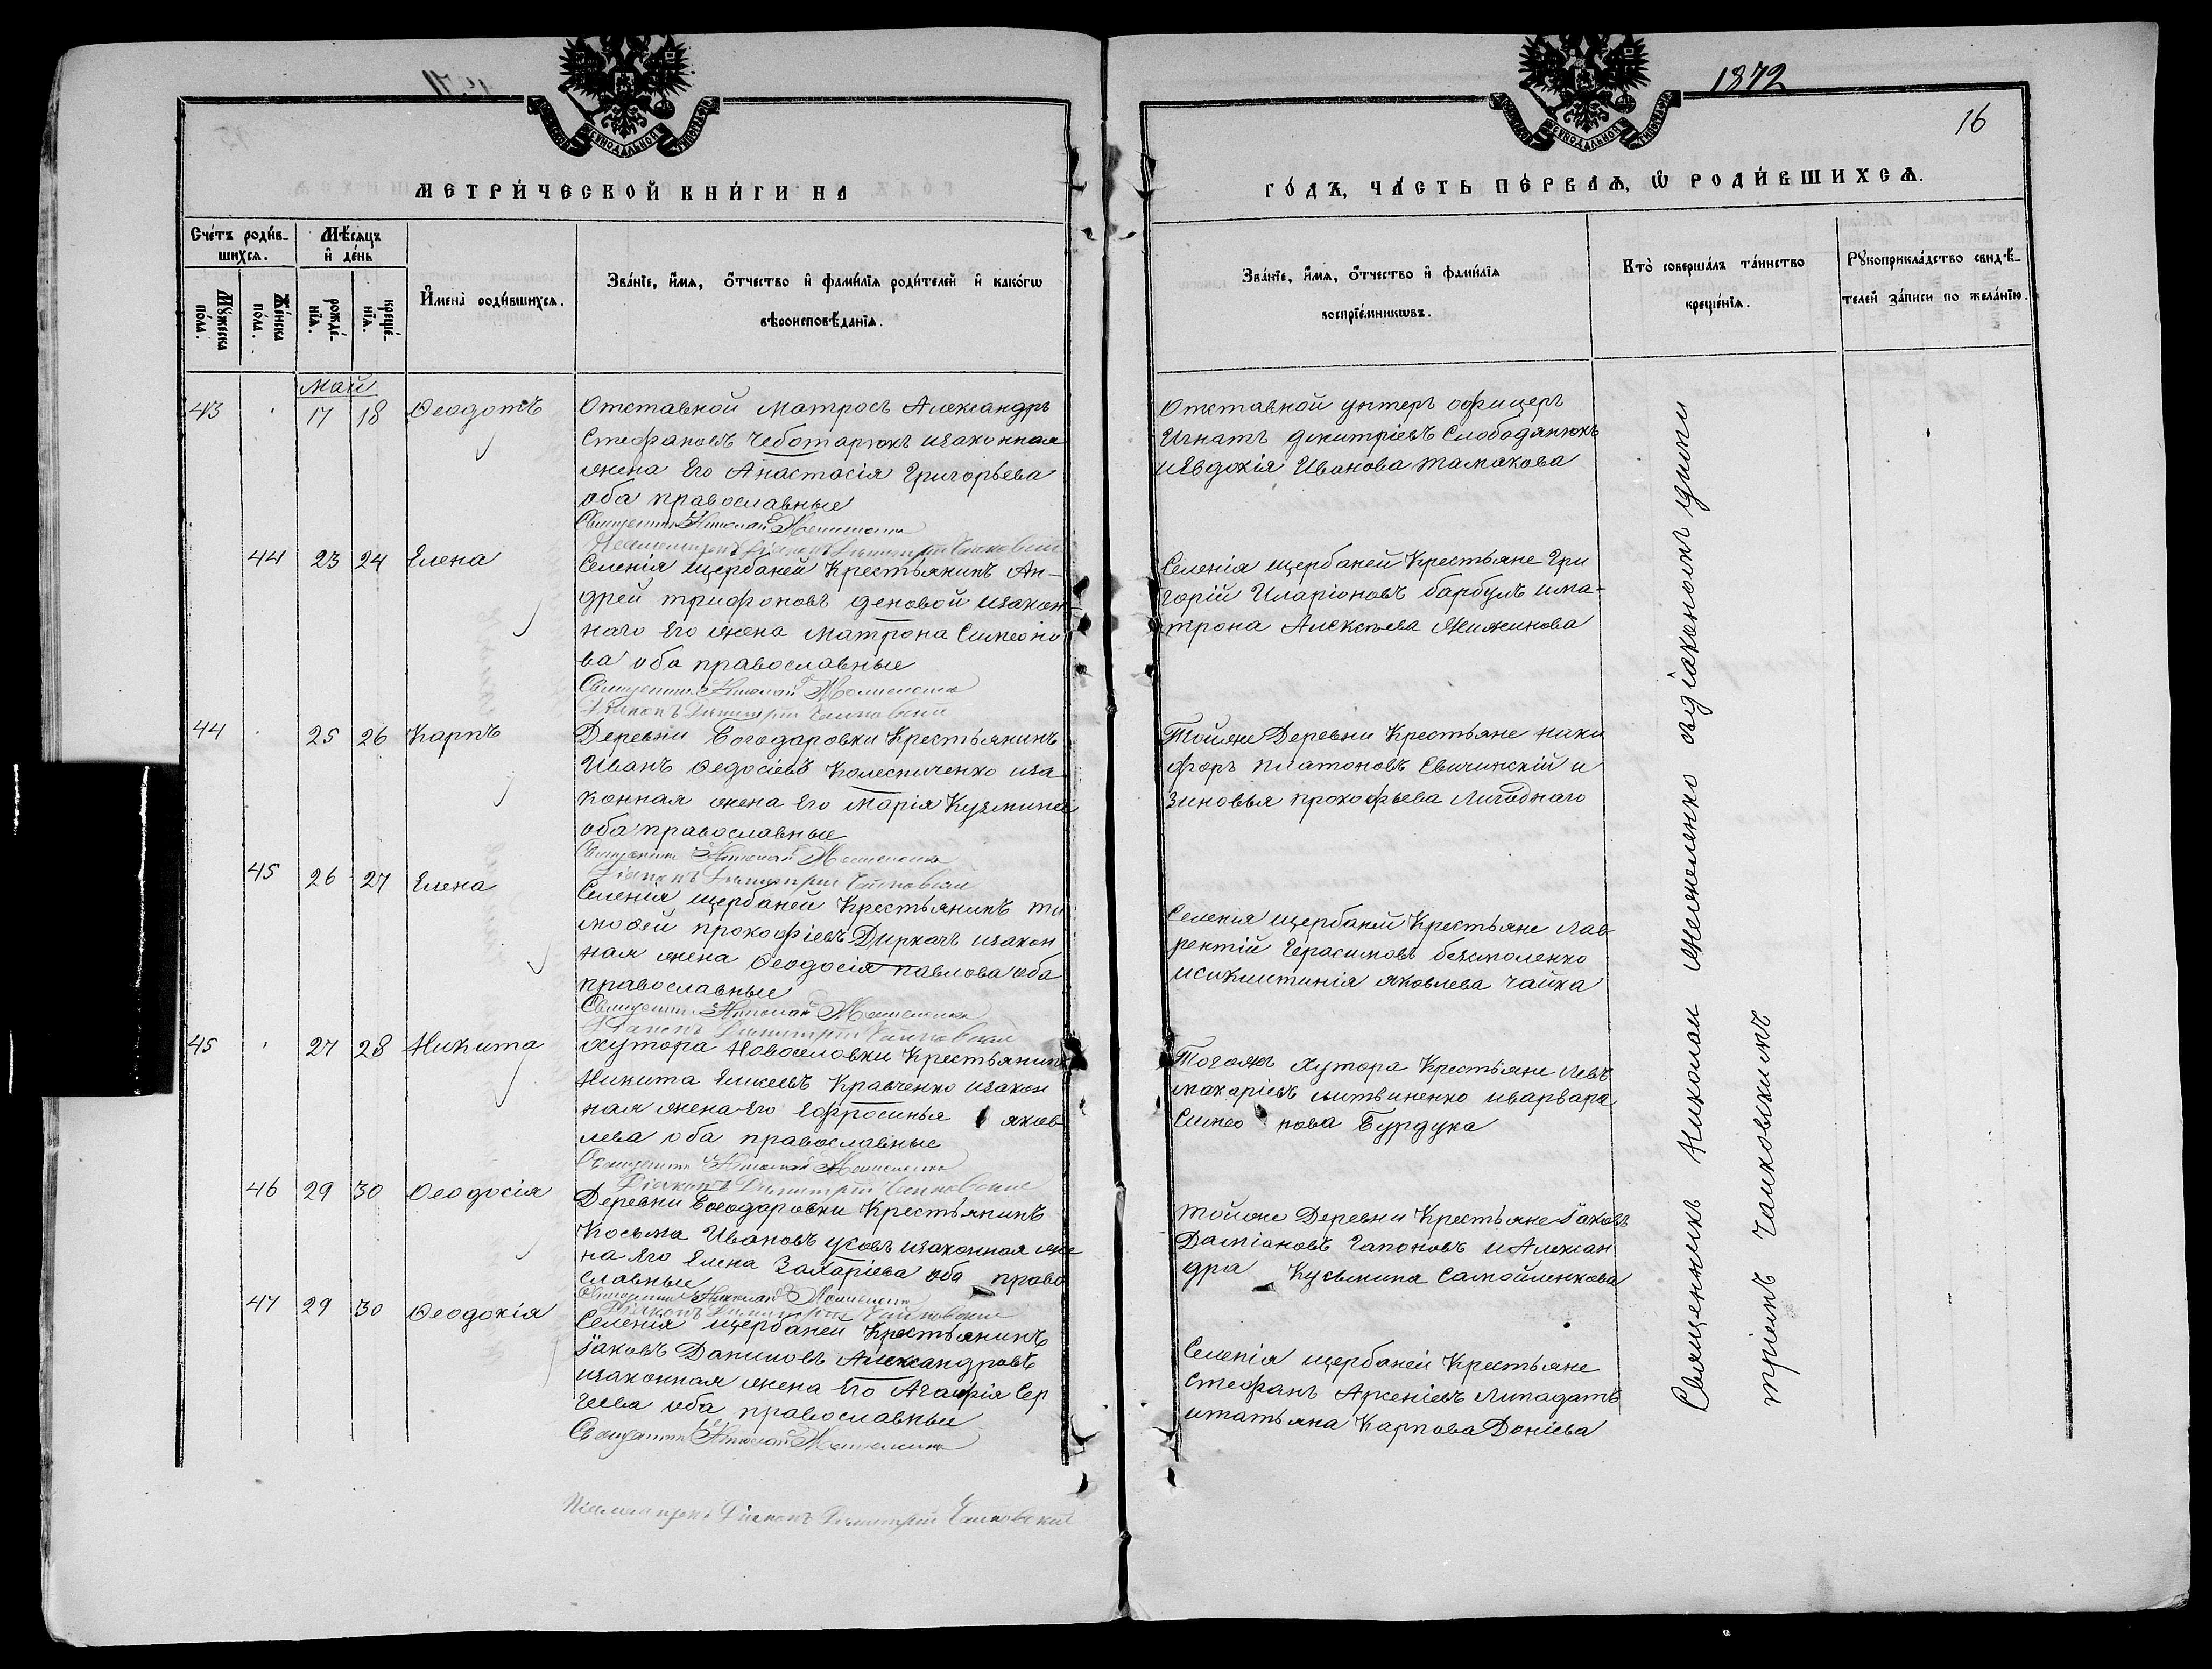 1872
16
МЕТРИ́ЧЕСКОЙ КНИ́ГИ НА
ГО́ДЪ, ЧА́СТЬ ПЕ́РВАѦ, Ѽ РОДИ́ВШИХСѦ.
Сче́тъ роди́в-
шихсѧ.
Мѣ́сѧцъ
и҆ де́нь
Мꙋ́жеска
по́ла.
Же́нска
по́ла.
рожде́-
нїѧ.
креще́-
нїѧ.
И҆мена̀ роди́вшихсѧ.
Зва́нїе, и҆́мѧ, ѻ҆́тчество и҆ фами́лїѧ роди́телей и҆ како́гѡ
вѣроисповѣ́данїѧ.
Зва́нїе, и҆́мѧ, ѻ҆́тчество и҆ фами́лїѧ
воспрїе́мникѡвъ.
Кто̀ соверша́лъ та́инство
креще́нїѧ.
Рꙋкоприкла́дство свидѣ́-
телей за́писи по жела́нїю.
Май
43 17 18 Ѳеодотъ
Отставной матросъ Александръ
Стефановъ Чеботарюкъ изаконная
жена Его Анастасія Григорьева
оба православные
Священникъ Николай
Діаконъ Димитрій Чайковскій
Отставной унтеръ офицеръ
Игнатъ Димитріевъ Слободянюкъ
иЕвдокія Иванова Тамакова
44 23 24 Елена
Селенія Щербаней Крестьянинъ Ан-
дрей Трифоновъ Деновой изакон-
наго Его жена Матрона Симеоно
ва оба православные
Священникъ Николай
Діаконъ Димитрій Чайковскій
Селенія Щербаней Крестьяне Гри
горій Иларіоновъ Барбулъ има-
трона Алексѣева Жижинова
44 25 26 Карпъ
Деревни Богодаровки Крестьянинъ
Иванъ Ѳедосіевъ Колесниченко иза
конная жена Его Марія Кузмина
оба православные
Священникъ Николай
Діаконъ Димитрій Чайковскій
Тойже Деревни Крестьяне Ники
форъ Платоновъ Свичинскій и
Зиновья Прокофьева Лигоднаго
45 26 27 Елена
Селенія Щербаней Крестьянинъ Ти
моѳей Прокофіевъ Диркачъ изакон
ная жена Ѳеодосія Павлова оба
православные
Священникъ Николай
Діаконъ Димитрій Чайковскій
Селенія Щербаней Крестьяне Лав
рентій Герасимовъ Безсмоленко
исиклитинія Яковлева Чайка
45 27 28 Никита
Хутора Новоселовки Крестьянинъ
Никита Кравченко изакон
ная жена Его Ефросинья Яков
лева оба православные
Священникъ Николай
Діаконъ Димитрій Чайковскій
Тогожъ Хутора Крестьяне Левъ
Макаріевъ Литвиненко иварвара
Симео нова Бурдука
46 29 30 Ѳеодосія
Деревни Богодаровки Крестьянинъ
Косьма Ивановъ Усовъ изаконная же
на Его Елена Захаріева оба право
славные
Священникъ Николай
Діаконъ Димитрій Чайковскій
Тойже Деревни Крестьяне Іаковъ
Даміановъ Гапоновъ иАлексан
дра Кузьмина Самойленкова
47 29 30 Ѳеодокія
Селенія Щербаней Крестьянинъ
Іаковъ Даниловъ Александровъ
изаконная жена Его Агафія Сер
геева оба православные
Священникъ Николай
Псаломщикъ Діаконъ Димитрій Чайковскій
Селенія Щербаней Крестьяне
Стефанъ Арсеніевъ Липадатъ
итатьяна Карпова Доніева
Священникъ Николай Мележенко ѡдіакономъ Дими
тріемъ Чайковскимъ